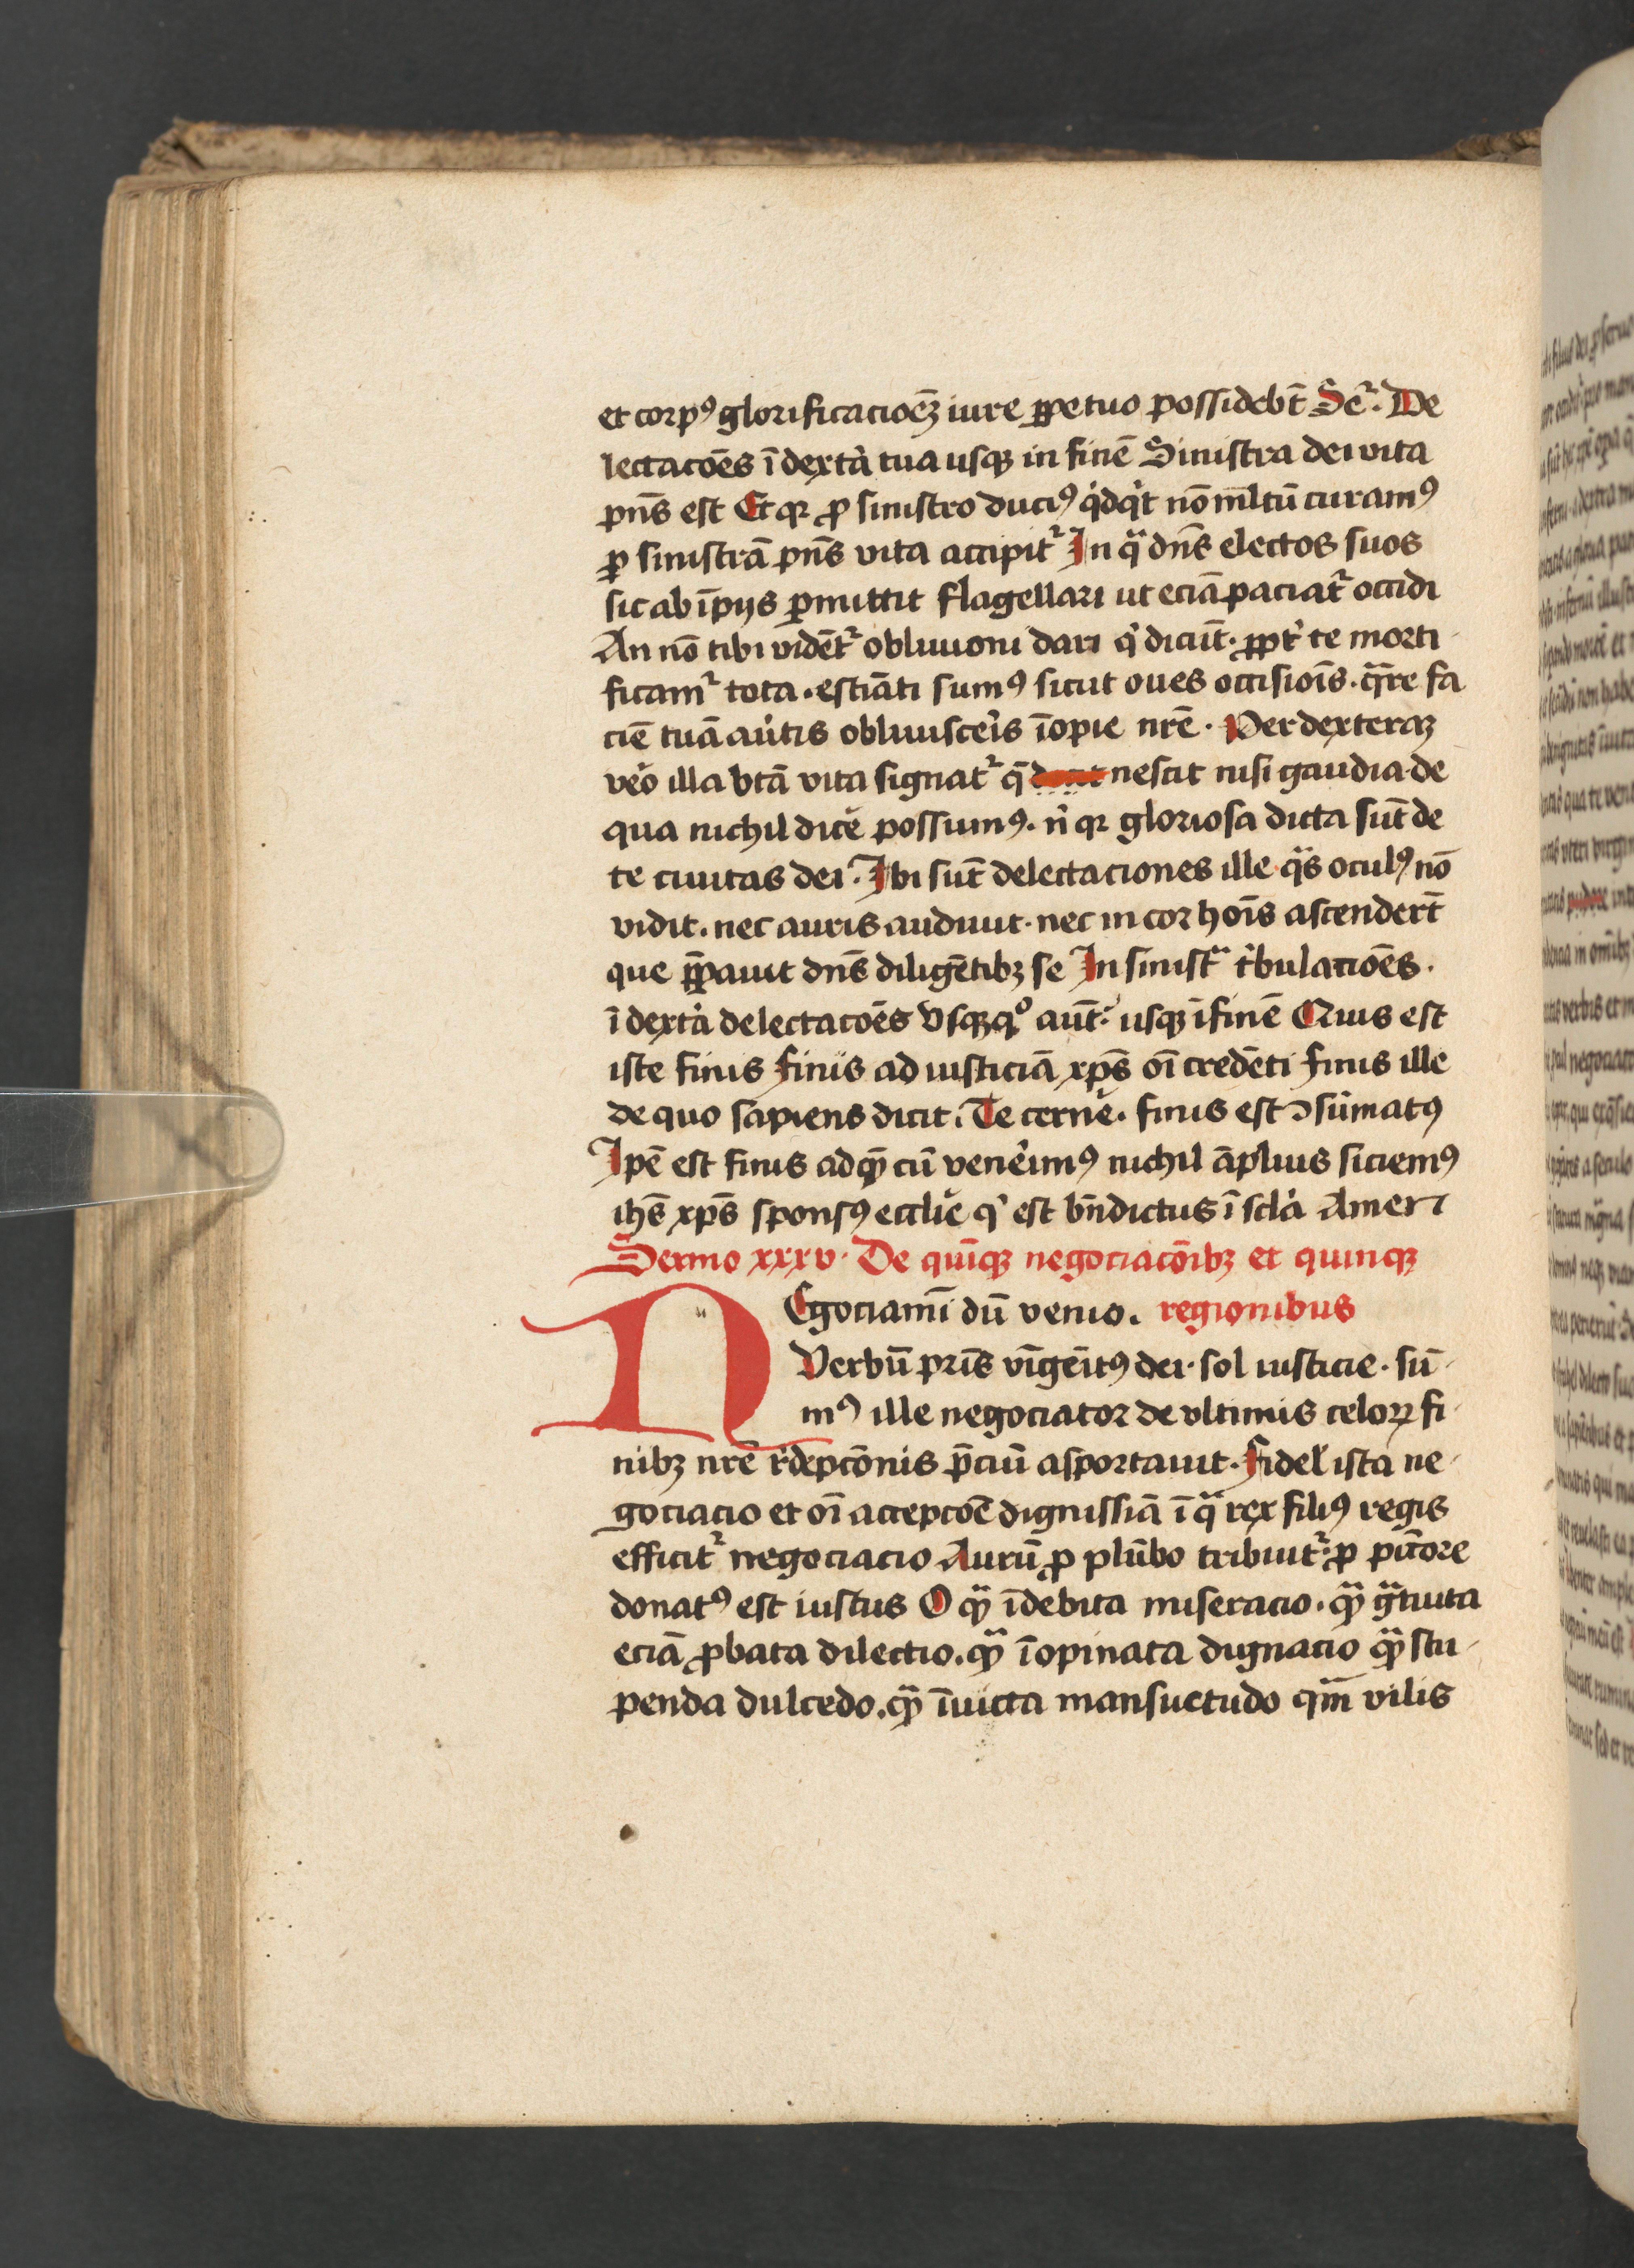 et corpꝰ glorificacioēꝫ iure ꝑpetuo possidebt̄ Se͛. De
lectacōēs ī dextᷓa tua usqꝫ in finē Sinistra dei vita
pn̄s est Et qꝛ ꝓ sinistro ducimꝰ qͥdqͥt nō ml̄tū curamꝰ
ꝓ sinistrā pn̄s vita accipit᷑ In qᷓ dn̄s electos suos
sic ab īpijs ꝑmittit flagellari ut eciā paciat᷑ occidi
An nō tibi vidēt᷑ obliuioni dari qͥ dicūt. ꝓpt͛ te morti
ficam᷑ tota. estīati sumꝰ sicut oues occisiōis. qᷓre fa
ciē tuā au͛tis obliuisce͛is īopie nr̄e. Per dexteraꝫ
ve͛o illa btā vita signat᷑ q̄ nescit nisi gaudia. de
qua nichil dice͛ possumꝰ. n͛ qꝛ gloriosa dicta sūt de
te ciuitas dei. Ibi sūt delectaciones ille qᷓs oculꝰ nō
vidit. nec auris audiuit. nec in cor hoīs ascendert̄
que p̄pauit dn̄s diligētibꝫ se In sinistᷓ tͥbulacioēs.
ī dextᷓa delectacōēs Vsqꝫ qͦ aūt. usqꝫ ī finē Quis est
iste finis finis ad iusticiā xp̄s oī credēti finis ille
de quo sapiens dicit. Te cerne͛. finis est ꝯsūmatꝰ
Ipē est finis ad qᷓ cū vene͛imꝰ nichil āplius siciemꝰ
ihs̄ xp̄s sponsꝰ ecclie͛ qͥ est bn̄dictus ī sclᷓa Amen
Sermo xxxv. De quīqꝫ negociacōibꝫ et quinqꝫ
NEgociamī dū venio. regionibus
Verbū prīs vīgēitꝰ dei. sol iusticie. sū
mꝰ ille negociator de vltimis celoꝝ fi
nibꝫ nr̄e r͛depcōnis p̄ciū asportauit. Fidel͛ ista ne
gociacio et oī accepcōē dignissīā ī qᷓ rex filiꝰ regis
efficit᷑ negociacio Aurū ꝓ plūbo tribuit᷑. ꝓ pc̄c̄ore
donatꝰ est iustus O qᷓ īdebita miseracio. qᷓ gᷓtuita
eciā ꝓbata dilectio. qᷓ īopinata dignacio qᷓ stu
penda dulcedo. qᷓ īuicta mansuetudo qm̄ vilis